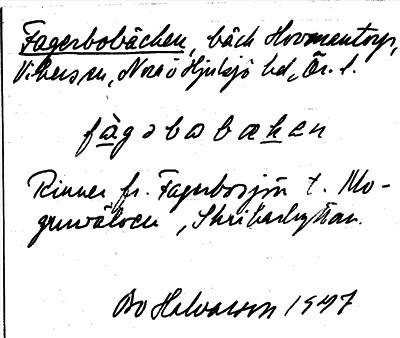 Fagerbobäcken, bäck Hovmantorp,
Vikers sn, Nora o Hjulsjö bd, Ör. l.
fàgәbobækεn
Rinner fr. Fagerbosjön t. Mo-
grusälven, Skrikarhyttan.
Bo Halvarson 1947